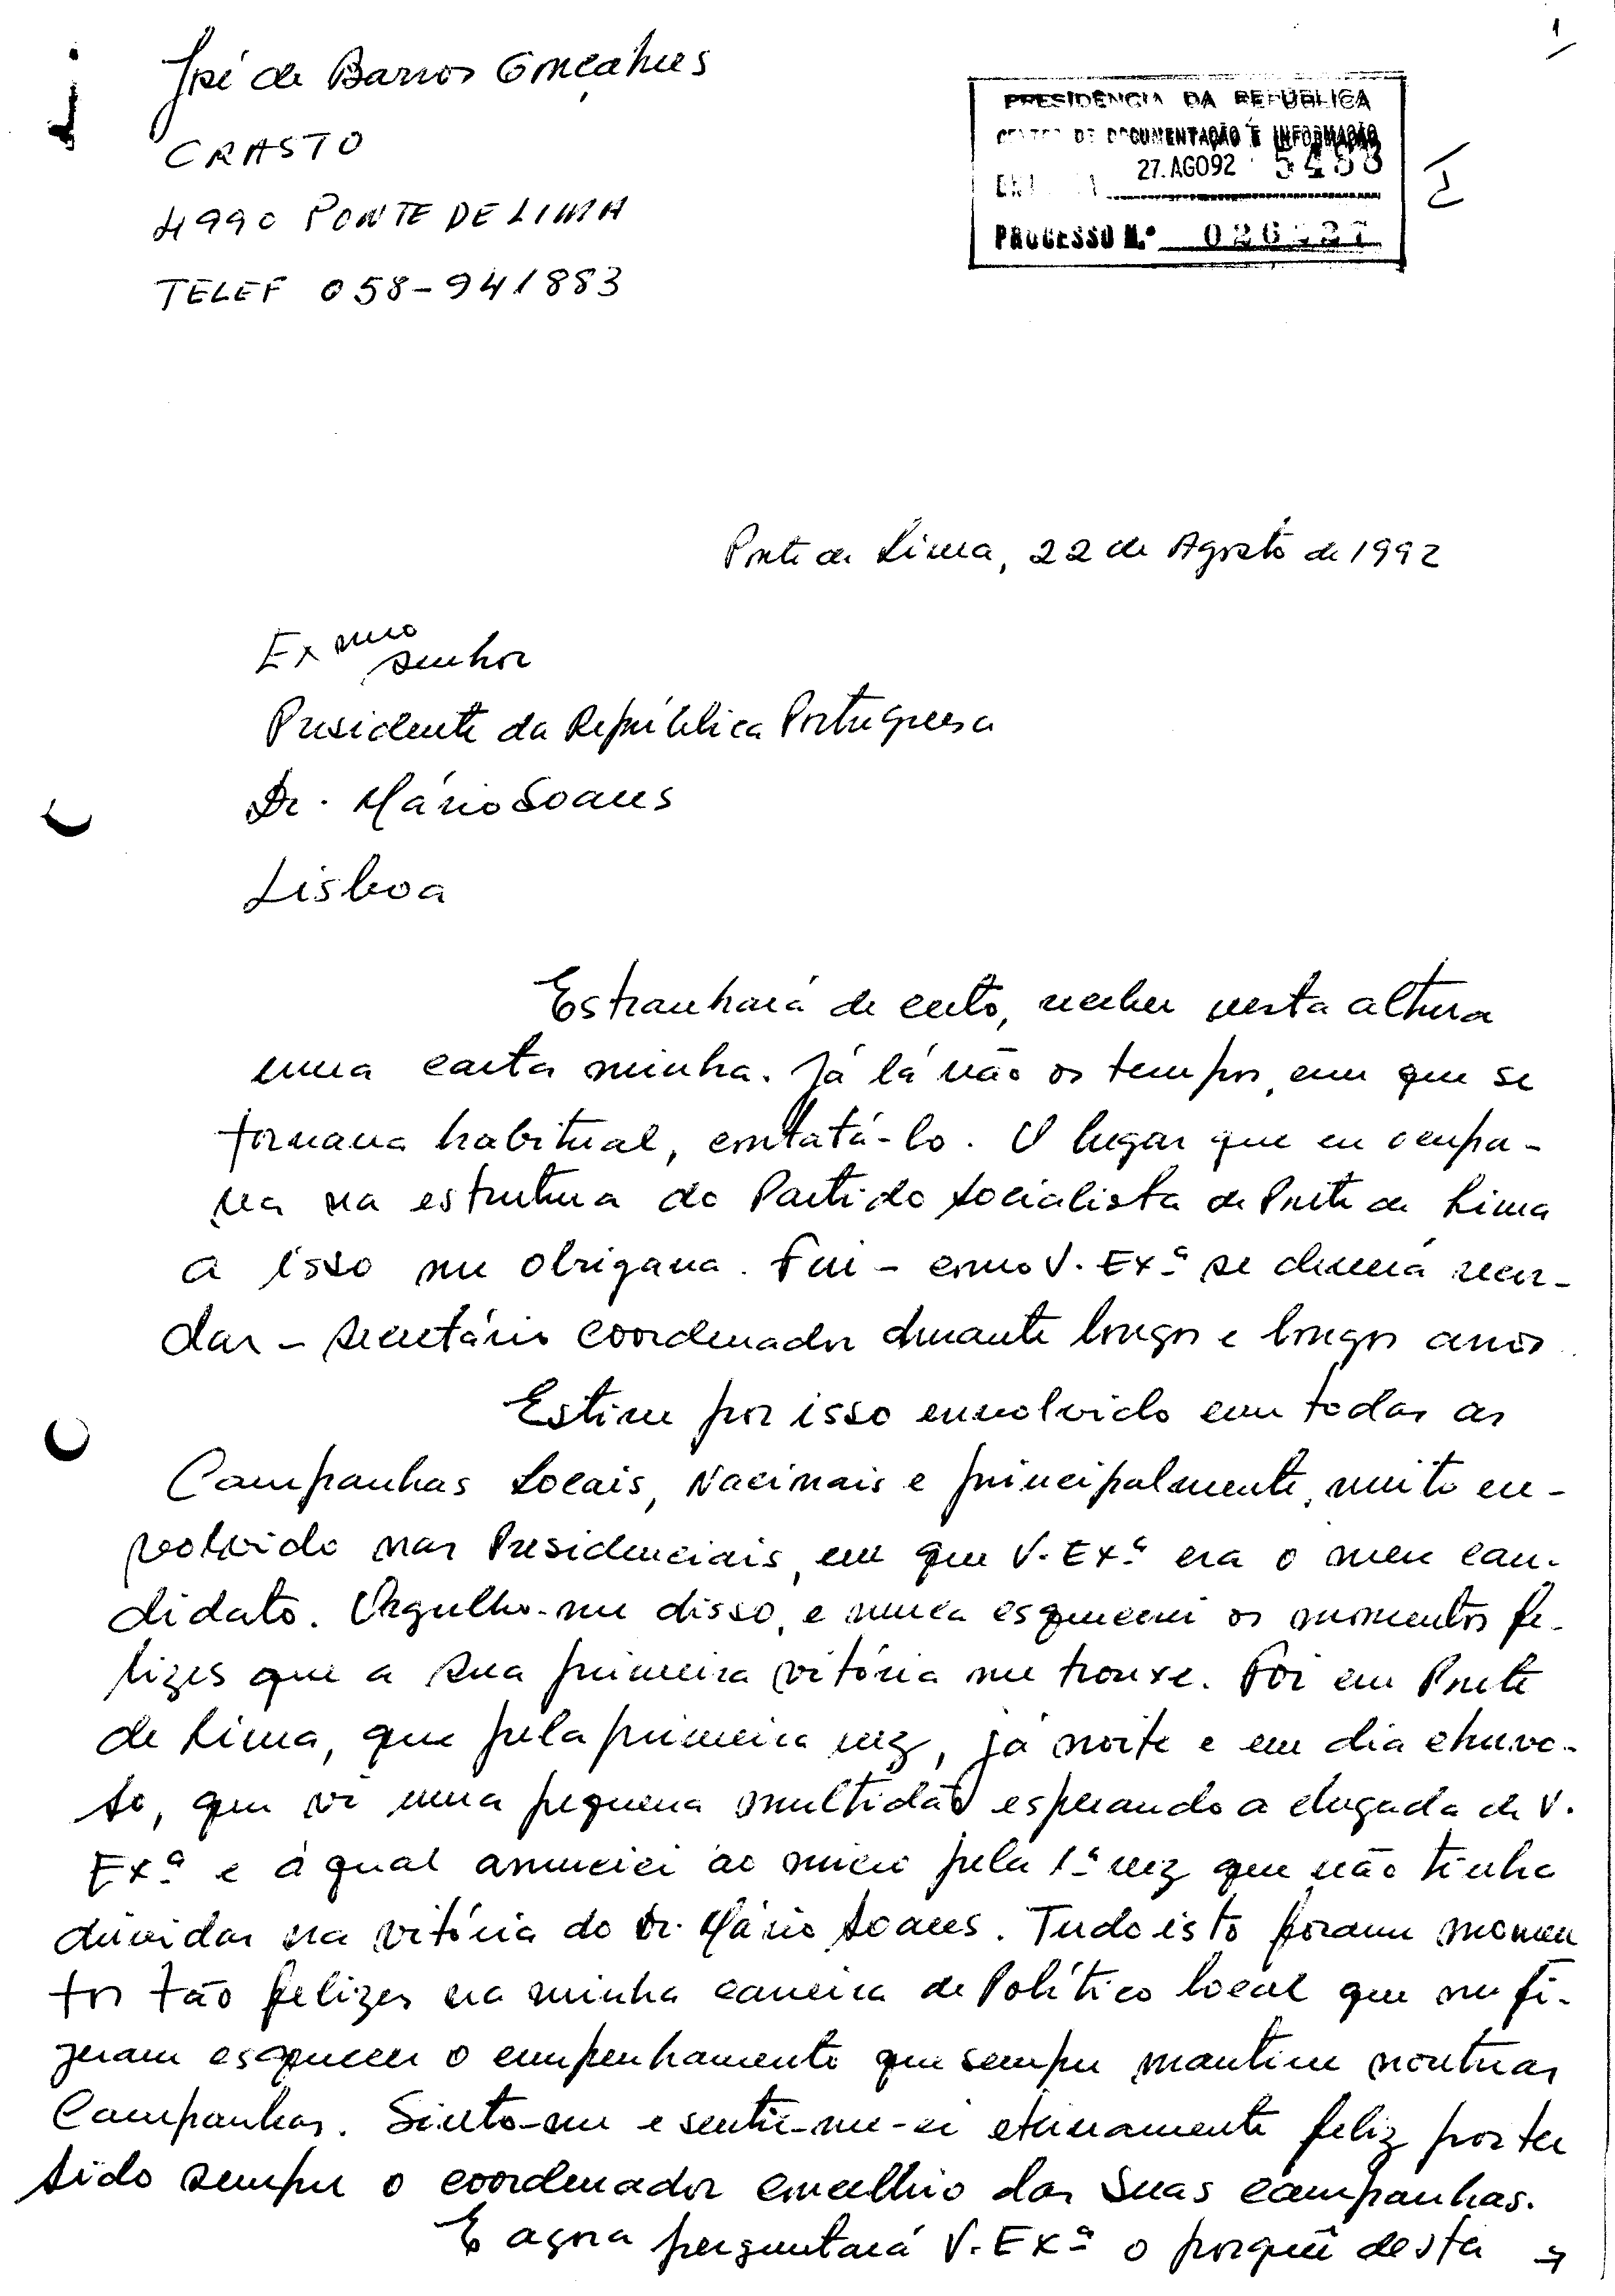 1
José de Barros Gonçalves
CRASTO
4990 PONTE DE LIMA
TELEF 058-941883
PRESIDÊNCIA DA REPÚBLICA
CENTRO DE DOCUMENTAÇÃO E INFORMAÇÃO
27.AGO92
PROCESSO N.º
Ponte de Lima, 22 de Agosto de 1992
Exmo
Senhor
Presidente da República Portuguesa
Dr. Mário Soares
Lisboa
Estranhará de certo, receber nesta altura
uma carta minha. Já lá vão os tempos, em que se
tornava habitual, contatá-lo. O lugar que eu ocupa-
va na estrutura do Partido Socialista de Ponte de Lima
a isso me obrigava. Fui - como V. Exª se deverá recor-
dar - secretário coordenador durante longos e longos anos
Estive por isso envolvido em todas as
Campanhas Locais, Nacionais e principalmente, muito en-
volvido nas Presidenciais, em que V. Exª era o meu can-
didato. Orgulho-me disso, e nunca esquecerei os momentos fe-
lizes que a sua primeira vitória me trouxe. Foi em Ponte
de Lima, que pela primeira vez, já noite e em dia chuvo-
so, que vi uma pequena multidão esperando a chegada de V.
Exª e à qual anunciei ao micro pela 1ª vez que não tinha
dúvidas na vitória do Dr. Mário Soares. Tudo isto foram momen
tos tão felizes na minha carreira de Político local que me fi-
zeram esquecer o empenhamento que sempre mantive noutras
Campanhas. Sinto-me e sentir-me-ei eternamente feliz por ter
sido sempre o coordenador concelhio das Suas campanhas.
E agora perguntará V. Exª o porquê desta →